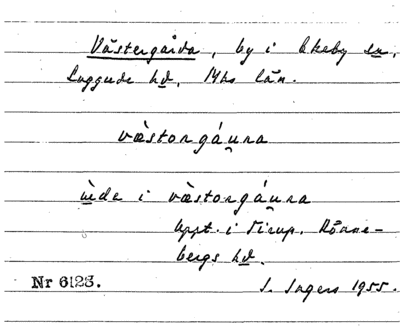 Västergårda, by i Ekeby sn,
Luggude hd, Mhs län.
væstorgáu̯na
ùde i væstorgáu̯na
Uppt. i Tirup, Rönne-
bergs hd.
Nr 6123. I. Ingers 1955.